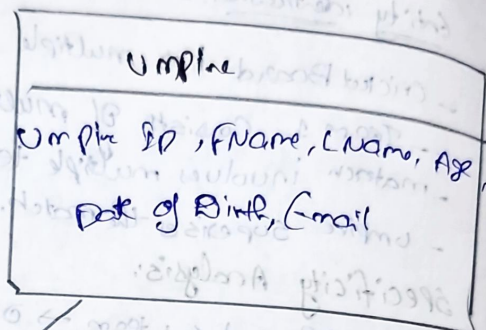 Umpire
Umpire ID, FName, LName, Age,
Date of Birth, E-mail